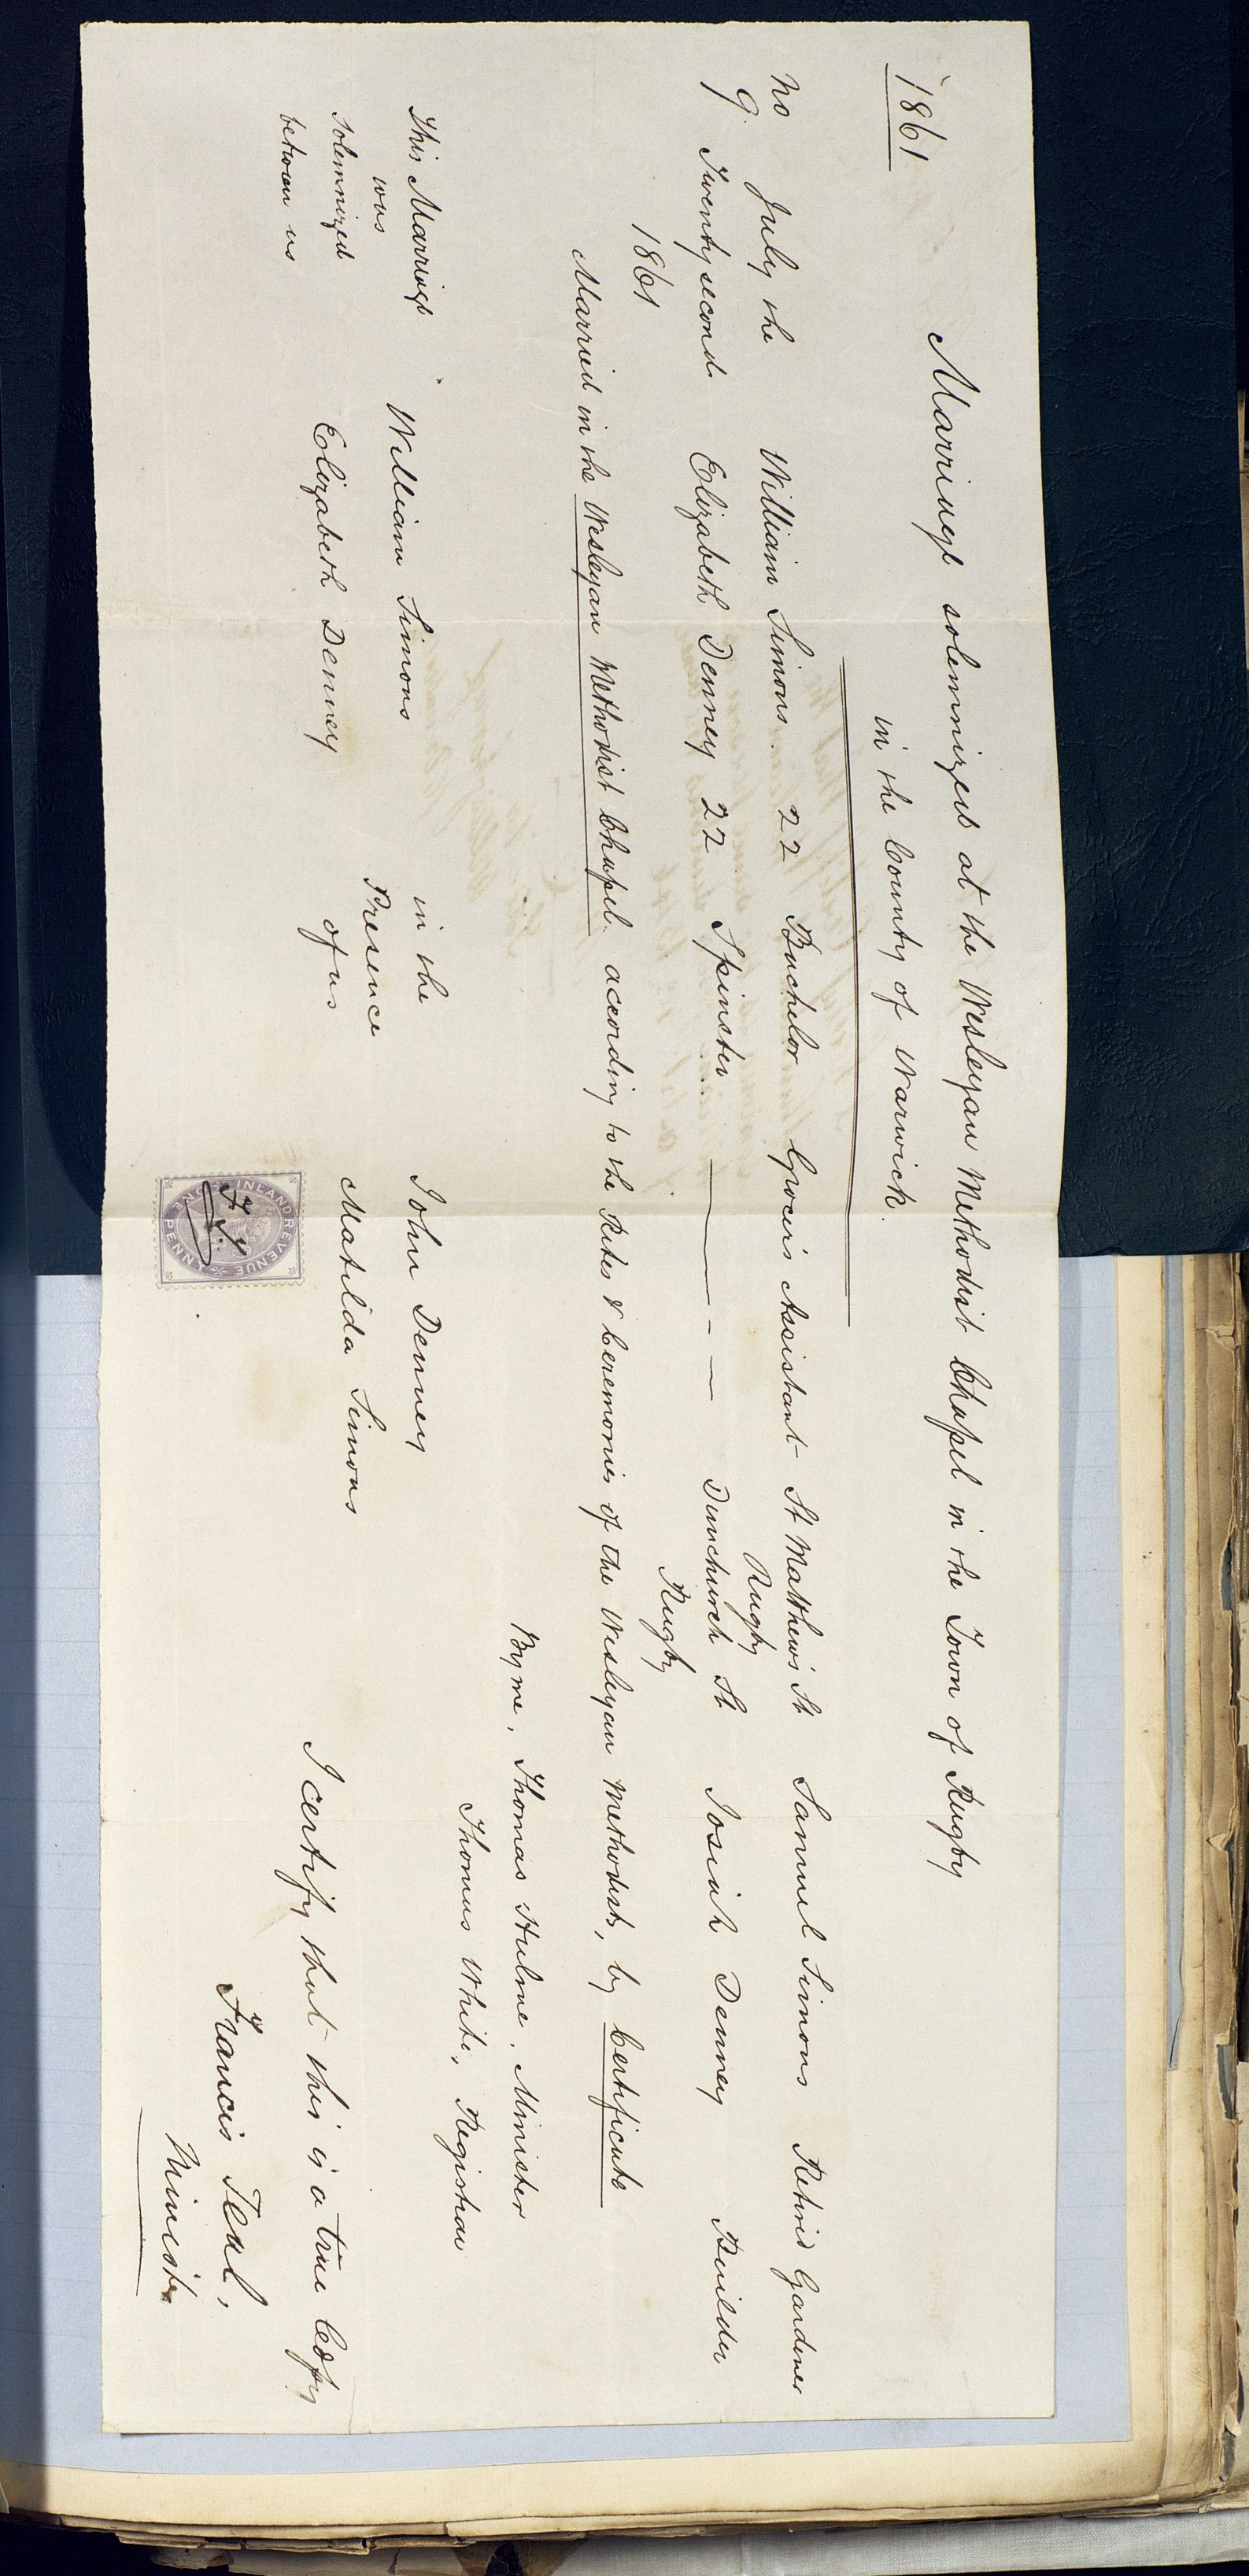 1861
Marriage solemnized at the Wesleyan Methodist Chapel in the Town of Rugby
in the County of Warwick.
No July the William Simons 22 Bachelor Grocer's Assistant St Matthews St Samuel Simons Retired Gardener
Rugby
9. Twenty second Elizabeth Denney 22 Spinster Dunchurch St Josiah Denney Builder
1861 Rugby
Married in the Wesleyan Methodist Chapel according to the Rites & Ceremonies of the Wesleyan Methodists, by Certificate
By me, Thomas Hulme, Minister
Thomas White, Registrar
This Marriage William Simons in the John Denney
was
solemnized Elizabeth Denney Presence Matilda Simons
between us of us
I certify that this is a true Copy
Francis Teal,
Minister
INLAND REVENUE
ONE PENNY